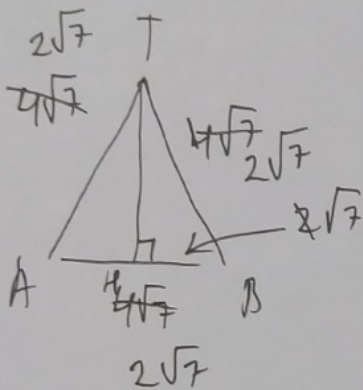 2√7 T
4√7
4√7
2√7
2√7
A H B
4√7
2√7